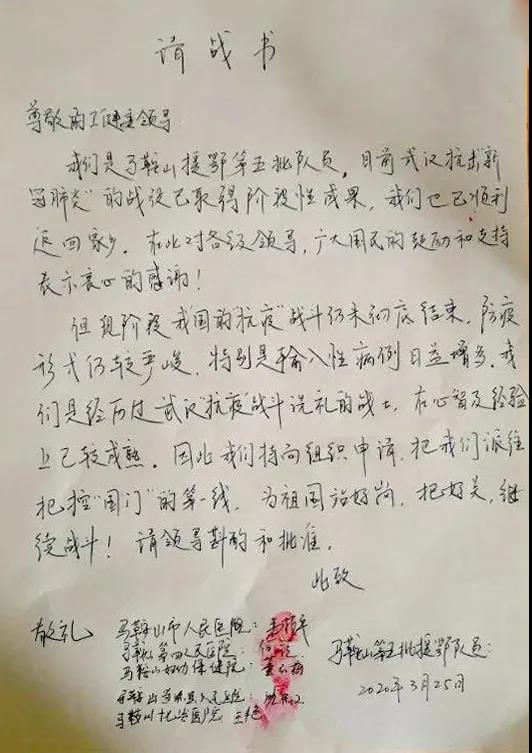 请战书
尊敬的卫健委领导
我们是马鞍山援鄂第五批队员。目前武汉抗击"新
冠肺炎"的战役已取得阶段性成果，我们也已顺利
返回家乡。在此对各级领导，广大国民的鼓励和支持
表示衷心的感谢！
但现阶段我国的"抗疫"战斗仍未彻底结束，防疫
形式仍较严峻，特别是输入性病例日益增多。我
们是经历过武汉"抗疫"战斗洗礼的战士，在心智及经验
上已较成熟。因此我们特向组织申请，把我们派往
把控"国门"的第一线，为祖国站好岗，把好关，继
续战斗！请领导斟酌和批准。
此致
敬礼
马鞍山市人民医院：
马鞍山第四人民医院：
马鞍山妇幼保健院：
马鞍山
马鞍山十七冶医院 王艳
马鞍山第五批援鄂队员：
2020年3月25日